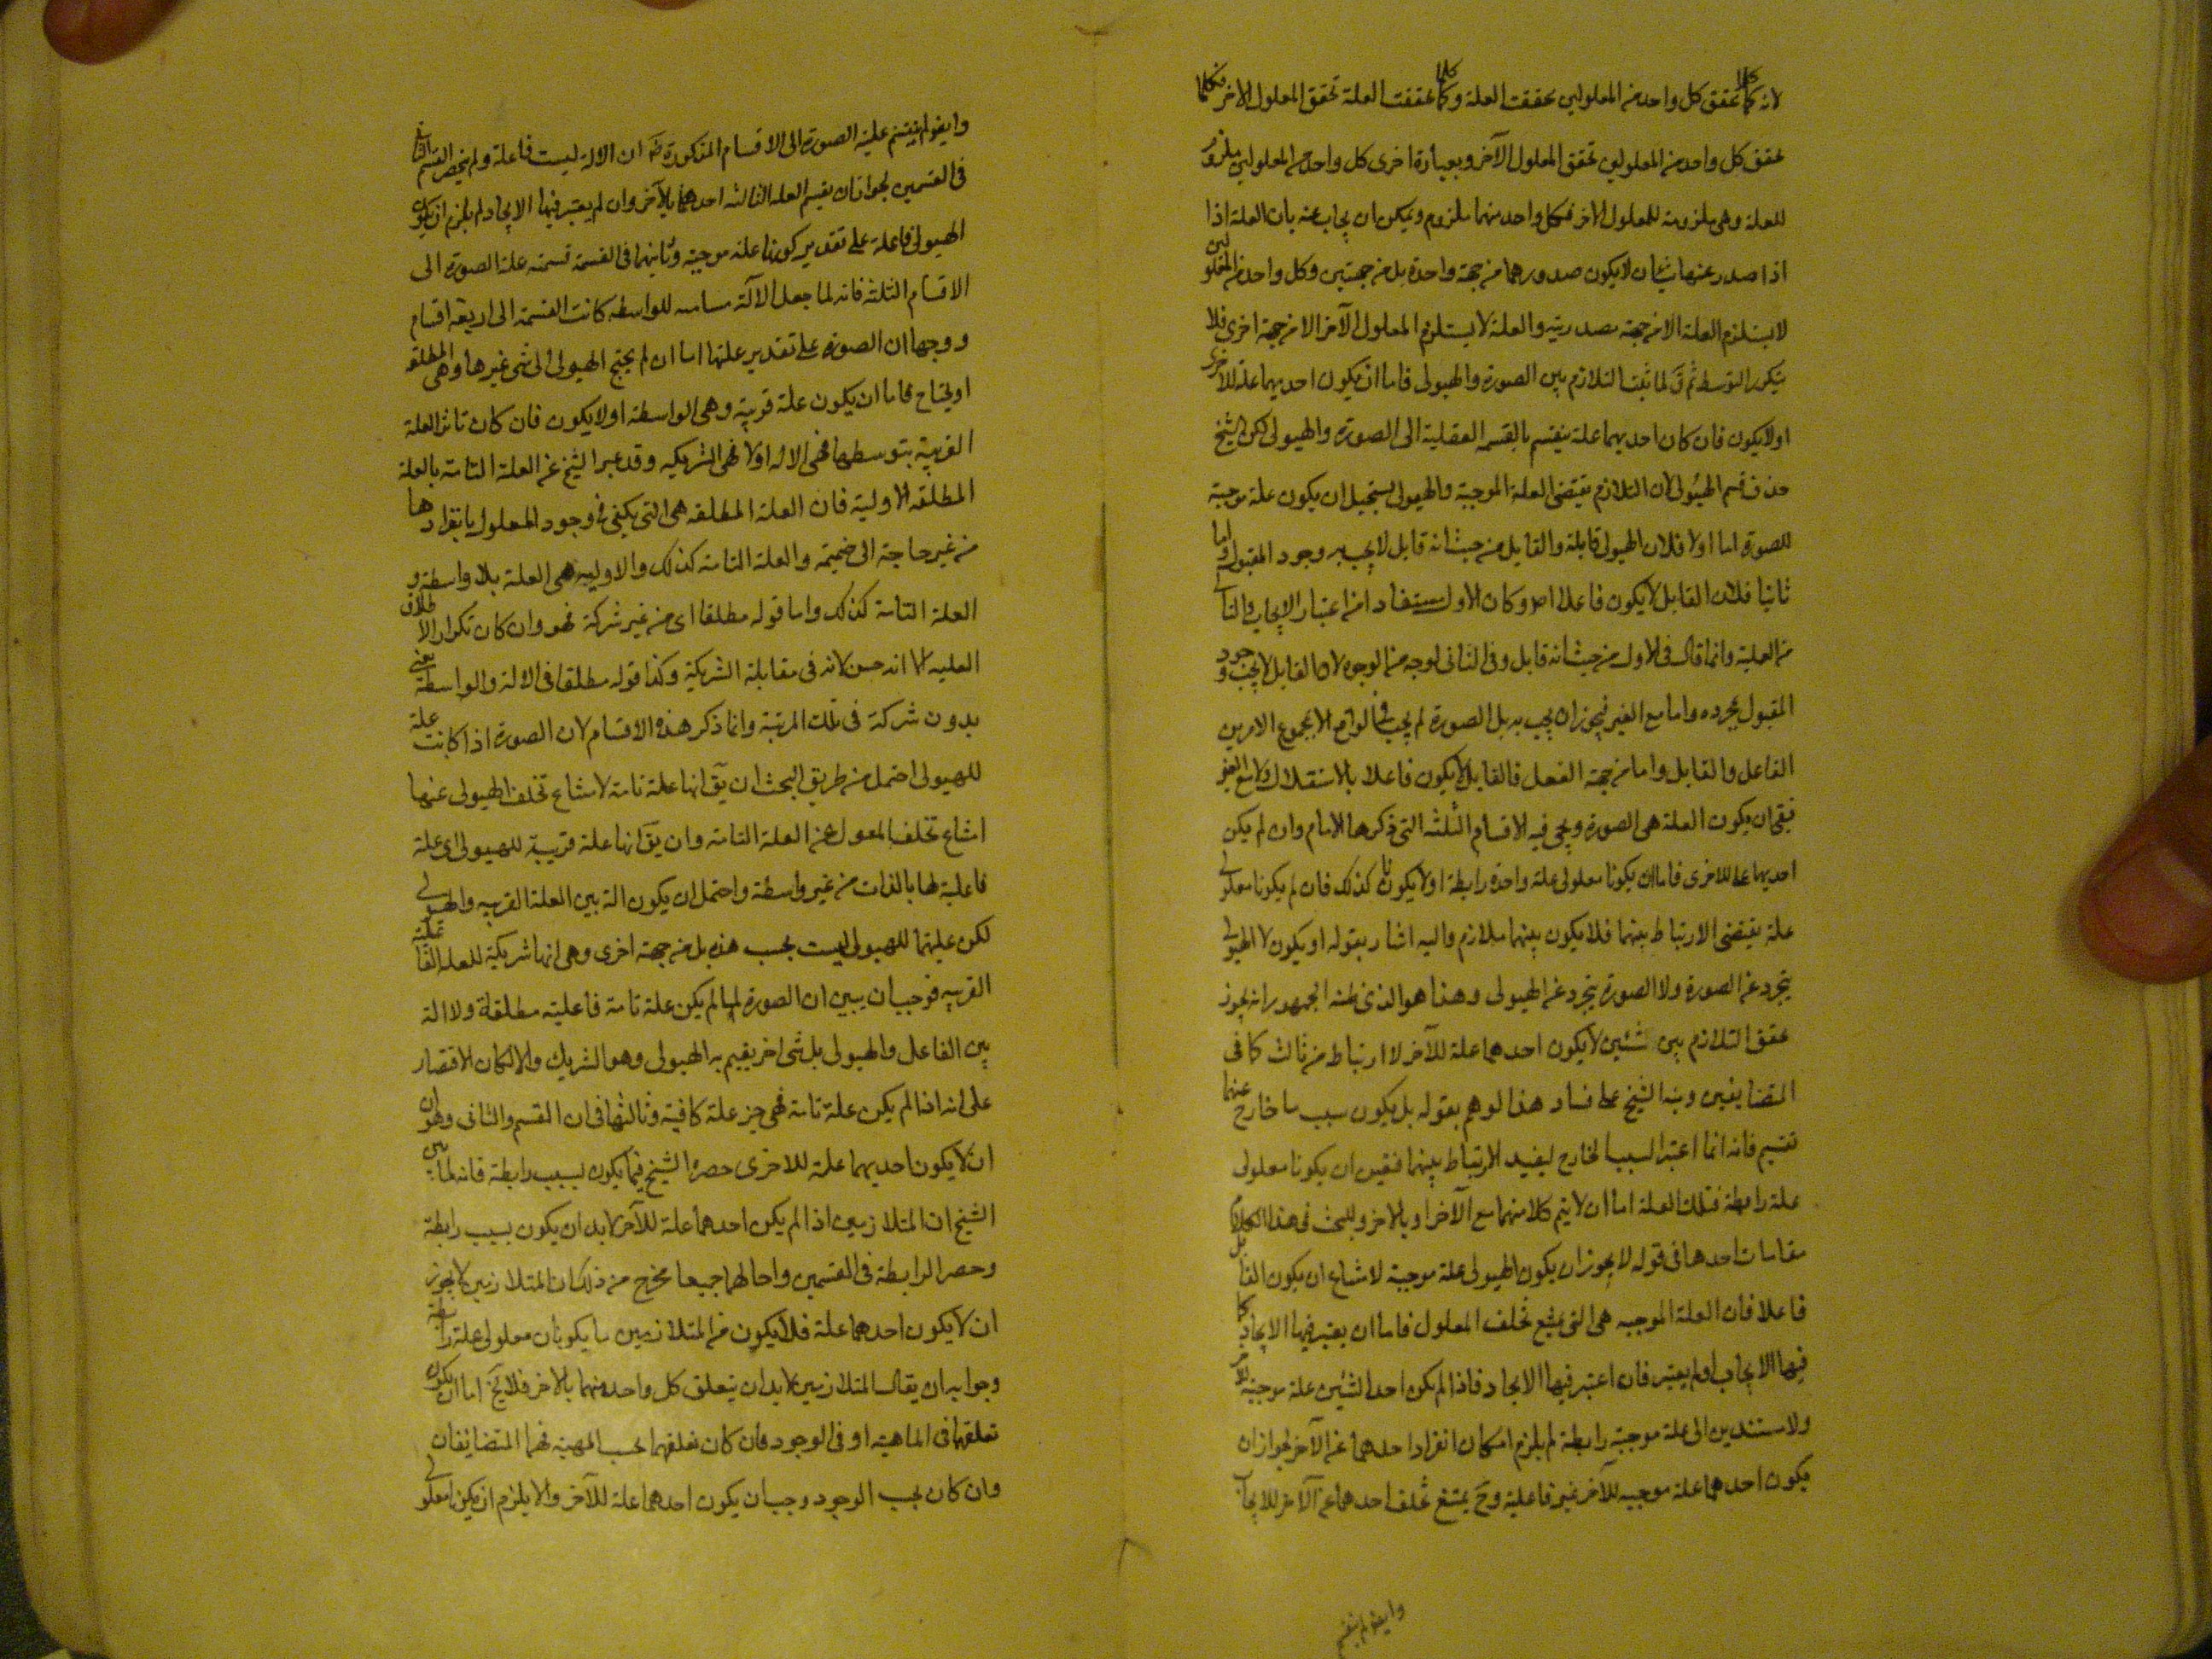 لانه كلما تحقق كل واحد من المعلولين تحققت العلة وكلما تحققت العلة تحقق المعلول الاخر فكلما
تحقق كل واحد من المعلولين تحقق المعلول الآخر وبعبارة اخرى كل واحد من المعلولين ملزوم
للعلة وهى ملزومة للمعلول الاخر فكل واحد منهما ملزوم ويمكن ان يجاب عنه بان العلة اذا
اذا صدر عنها شيئان لا يكون صدورهما من جهة واحدة بل من جهتين وكل واحد من المعلولين
لا يستلزم العلة الا من جهة مصدريته والعلة لا يستلزم المعلول الآخر الا من جهة اخرى فلا
يتكرر التوسط ثم لما ثبت التلازم بين الصورة والهيولى فاما ان يكون احديهما علة للاخرى
اولا يكون فان كان احديهما علة ينقسم بالقسمه العقلية الى الصورة والهيولى لكن الشيخ
حذف قسم الهيولى لان التلازم يقتضى العلة الموجبة والهيولى يستحيل ان يكون علة موجبة
للصورة اما اولا فلان الهيولى قابلة والقابل من حيث انه قابل لا يجب به وجود المقبول واما
ثانيا فلان القابل لا يكون فاعلا اصلا وكان الاول مستفاد من اعتبار الايجاب والثانى
من العلية وانما قال فى الاول من حيث انه قابل وفى الثانى لوجه من الوجوه لان القابل لا يجب وجود
المقبول بمجرده واما مع الغير فيجوز ان يجب به بل الصورة لم يجب فى الواقع الا بمجموع الامرين
الفاعل والقابل واما من جهة الفعل فالقابل لا يكون فاعلا بالاستقلال ولا مع الغير
فبقى ان يكون العلة هى الصورة ويجى فيه الاقسام الثلثه التى ذكرها الامام وان لم يكن
احديهما علة للاخرى فاما ان يكونا معلولى علة واحدة رابطة اولا يكونا كذلك فان لم يكونا معلولى
علة يقتضى الارتباط بينهما فلا يكون بينهما تلازم واليه اشار بقوله او يكون لا الهيولى
يتجرد عن الصورة ولا الصورة يتجرد عن الهيولى وهذا هو الذى ظنه الجمهور انه يجوز
تحقق التلازم بين شيئين لا يكون احدهما علة للآخر لا ارتباط من ثالث كما فى
المتضايفين ونبه الشيخ على فساد هذا لوهم بقوله بل يكون سبب ما خارج عنهما
تقسيم فانه انما اعتبر السبب الخارج ليفيد الارتباط بينهما فتعين ان يكونا معلولى
علة رابطة فتلك العلة اما ان لا يتم كلا منهما مع الآخر او بالاخر وللبحث فى هذا الكلام
مقامات احدها فى قوله لا يجوز ان يكون الهيولى علة موجبة لامتناع ان يكون القابل
فاعلا فان العلة الموجبه هى التى يمتنع تخلف المعلول فاما ان يعتبر فيها الايجاد كما
فيها الايجاب او لم يعتبر فان اعتبر فيها الايجاد فاذا لم يكن احد الشيئين علة موجبة للآخر
ولا مستندين الى علة موجبة رابطة لم يلزم امكان انفراد احدهما عن الآخر لجواز ان
يكون احدهما علة موجبه للآخر غير فاعلية وح يمتنع تخلف احدهما عن الآخر للايجاب
وايضو لم ينقسم
وايضو لم ينقسم علية الصورة الى الاقسام المذكورة ضرورة ان الالة ليست فاعلة ولم ينحصر القسم الثانى
فى القسمين لجواز ان يقيم العلة الثالثه احدهما بالآخر وان لم يعتبر فيها الايجاد لم يلزم ان يكون
الهيولى فاعلة على تقدير كونها علة موجبة وثانيهما فى القسمة قسمة علة الصورة الى
الاقسام الثلثه فانه لما جعل الآلة مباينه للواسطه كانت القسمة الى اربعة اقسام
ووجهها ان الصورة على تقدير علتها اما ان لم يحتج الهيولى الى شى غيرها وهى المطلقه
او يحتاج فاما ان يكون علة قريبة وهى الواسطة اولا يكون فان كان تاثر العلة
القريبة بتوسطها فهى الالة اولا فهى الشريكه وقد عبر الشيخ عن العلة التامة بالعلة
المطلقه الاولية فان العلة المطلقه هى التى يكفى فى وجود المعلول بانفرادها
من غير حاجة الى ضميمة والعلة التامة كذلك والاوليه هى العلة بلا واسطة و
العلة التامة كذلك واما قوله مطلقا اى من غير شركة فهو وان كان تكرار الاطلاق
العليه الا انه حسن لانه فى مقابلة الشريكة وكذا قوله مطلقا فى الالة والواسطة يعنى
بدون شركة فى تلك المرتبة وانما ذكر هذه الاقسام لان الصورة اذا كانت علة
للهيولى احتمل من طريق البحث ان يق انها علة تامة لامتناع تخلف الهيولى عنها
امتناع تخلف المعلول عن العلة التامة وان يق انها علة قريبة للهيولى اى علة
فاعلية لها بالذات من غير واسطة واحتمل ان يكون الة بين العلة القريبه والهيولى
لكن عليتها للهيولى ليست بحسب هذه بل من جهة اخرى وهى انها شريكة للعلة الفاعلية
القريبه فوجب ان يبين ان الصورة لما لم يكن علة تامة فاعليه مطلقة ولا الة
بين الفاعل والهيولى بل شى اخر يقيم به الهيولى وهو الشريك والا لكان الاقتصار
على انه اذا لم يكن علة تامة فهى جزء علة كافية وثالثها فى ان القسم والثانى وهو ان
ان لا يكون احديهما علة للاخرى حصره الشيخ فيما يكون لسبب رابطة فانه لما بين
الشيخ ان المتلازمين اذا لم يكن احدهما علة للآخر لا بد ان يكون بسبب رابطة
وحصر الرابطة فى القسمين واحالهما جميعا يخرج من ذلك ان المتلازمين لا يجوز
ان لا يكون احدهما علة فلا يكون من المتلازمين ما يكونان معلولى علة رابطة
وجوابه ان يقال المتلازمين لا بد ان يتعلق كل واحد منهما بالاخر فلا يخ اما ان يكون
تعلقهما فى الماهية او فى الوجود فان كان تعلقهما بحسب المهية فهما المتضايفان
وان كان بحسب الوجود وجب ان يكون احدهما علة للآخر والا يلزم ان يكونا معلولى